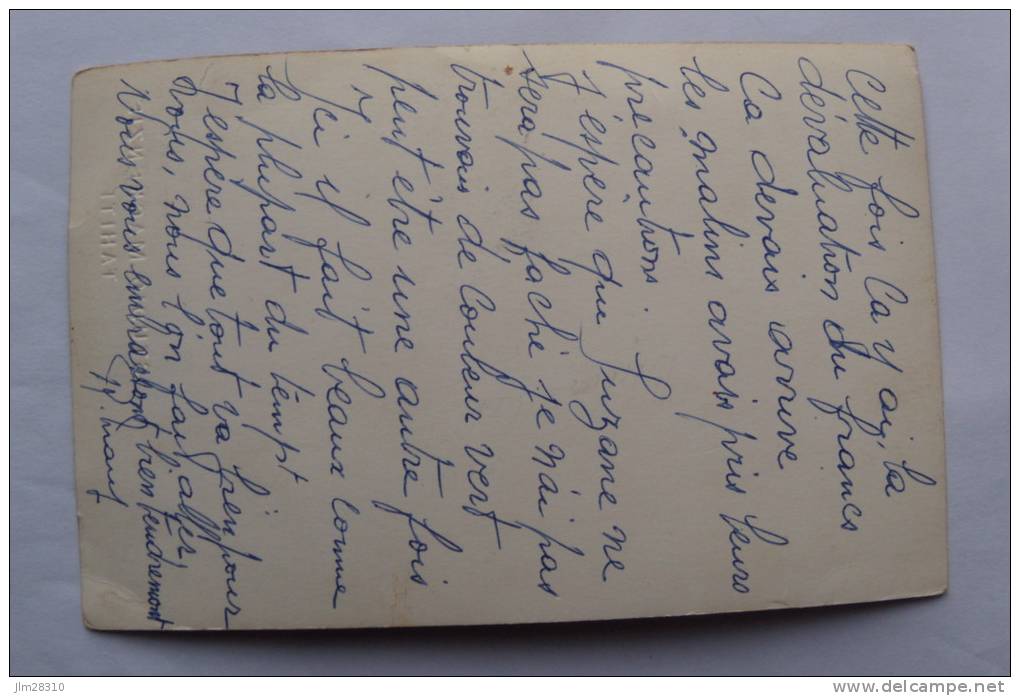 Cette fois Ca y ai, la
dévaluation du francs
Ca devais arrive
les malins avais pris leurs
précautions.
J'espère que Suzane ne
sera pas faché je n'ai pas
trouvais de couleur vert
peut être une autre fois
Ici il fait beaux comme
la plupart du tempt
J'espère que tout va bien pour
vous, nous on fait aller,
vous embrassont bien tendremont
TAHITI
jlm28310
www.delcampe.net